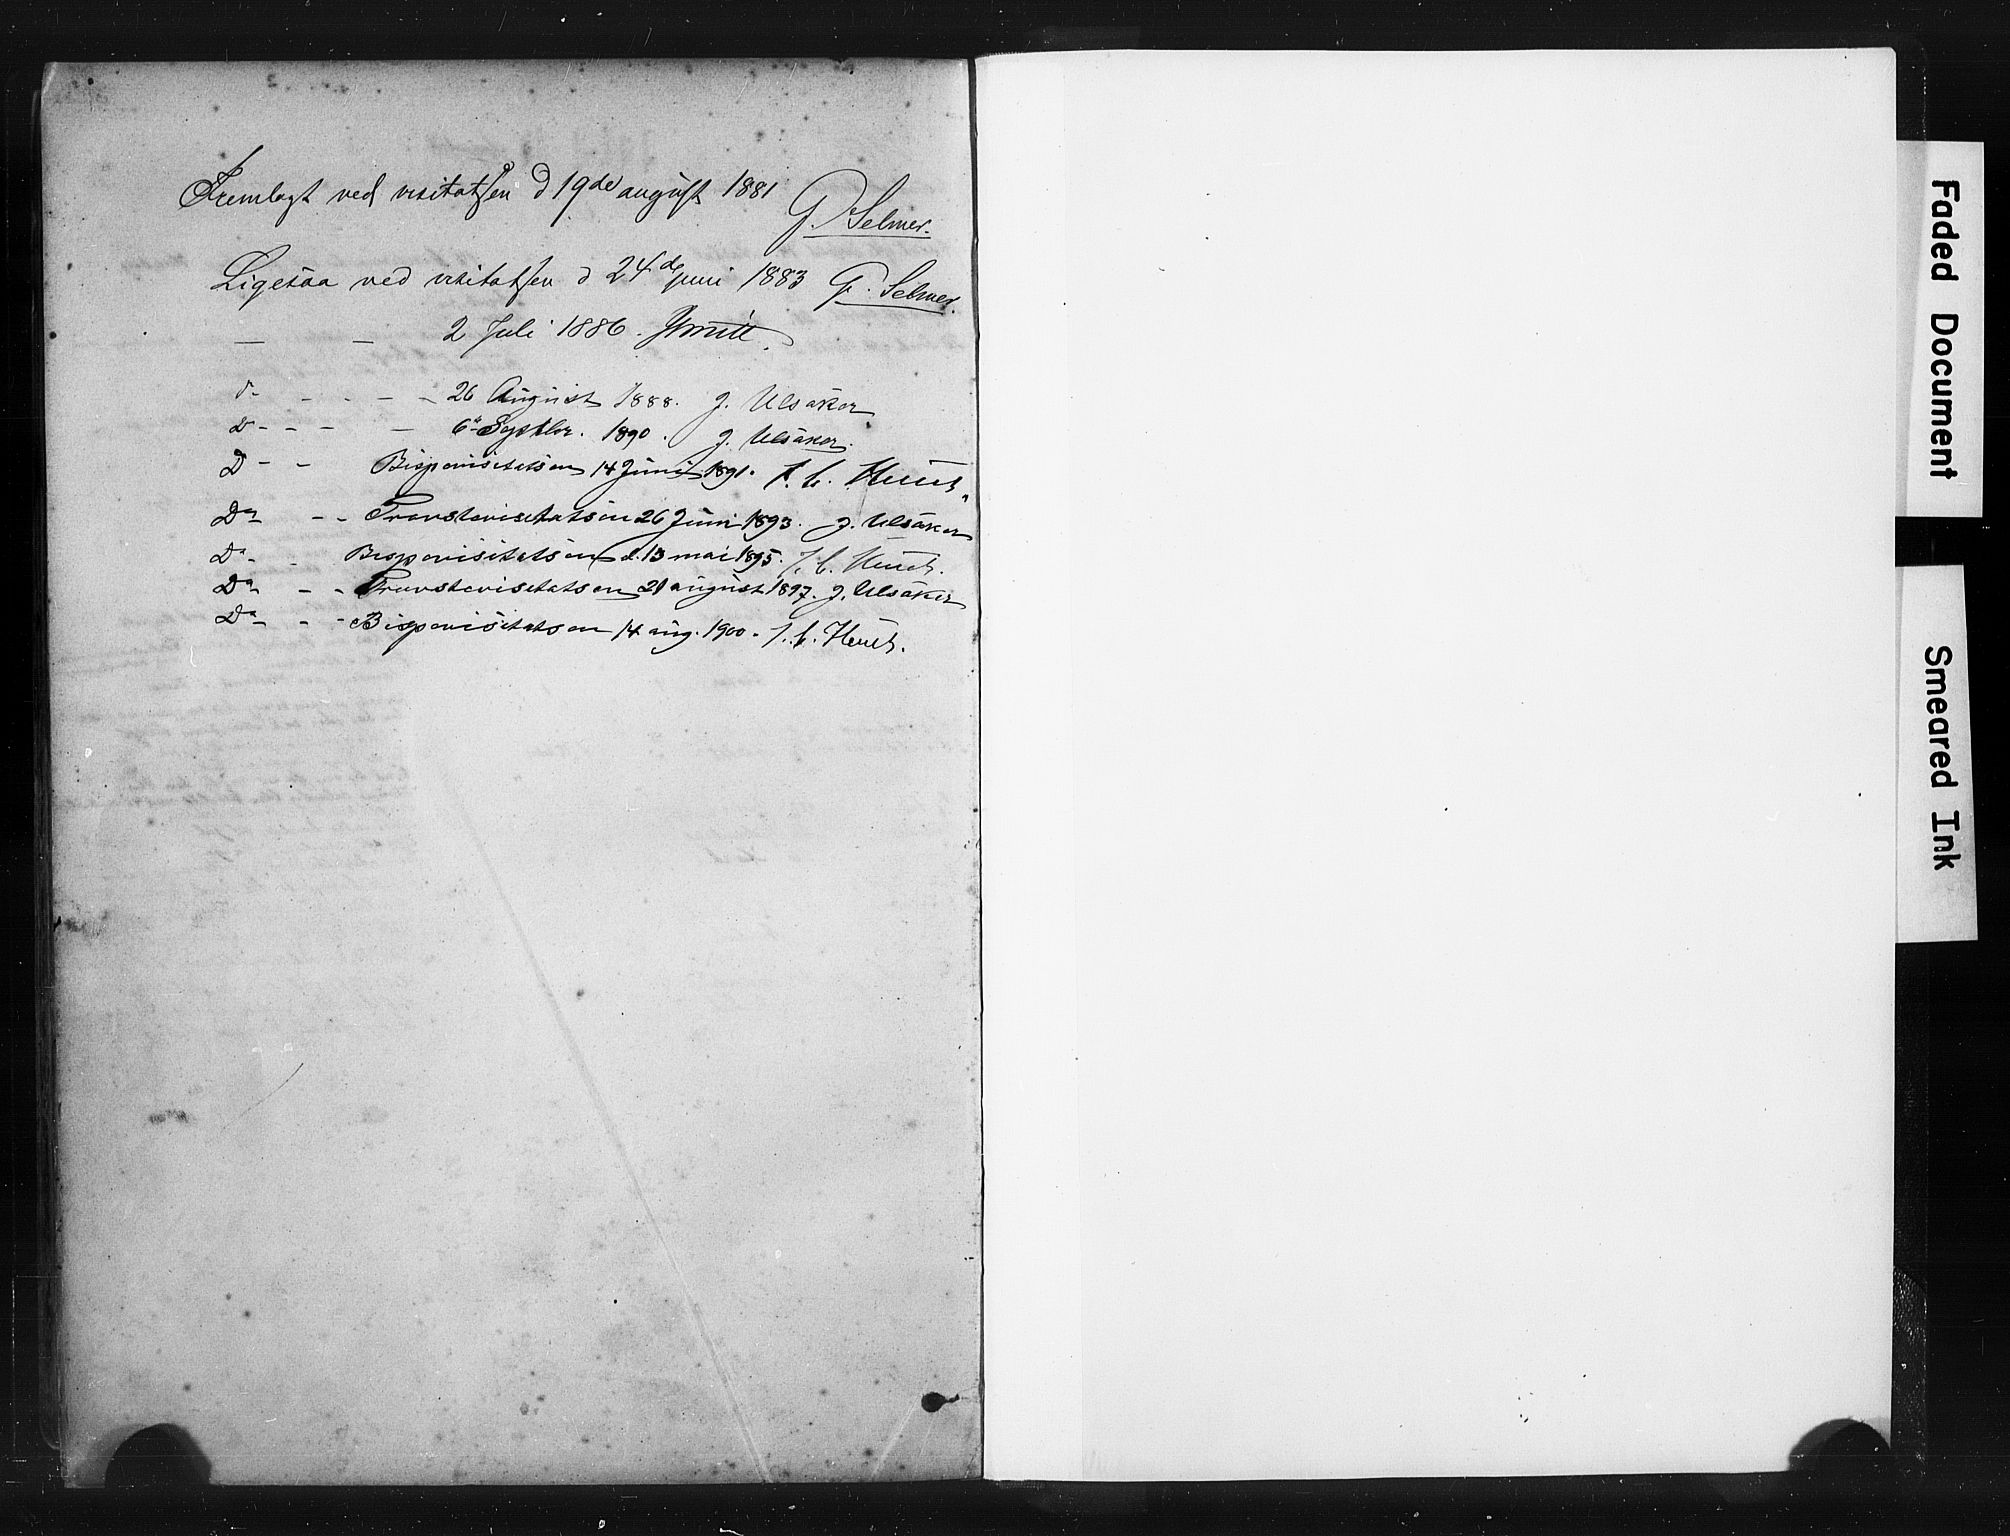 Fremlagt ved visitatsen d 19de august 1881
G. Selmer.
Ligesaa ved visitatsen d 24de juni 1883 G. Selmer.
— — 2 Juli 1886.
do - - - - 26 August 1888. J. Ulsaker
Do - - - - 6te Septbr. 1890. J. Ulsaker.
Do - - Bispevisitatsen 14 Juni 1891. J. C. Heuch.
Do - - Provstevisitatsen 26 Juni 1893. J. Ulsaker
Do - - Bispevisitatsen d. 13 mai 1895. J. C. Heuch.
Do - - Provstevisitatsen 21 august 1897. J. Ulsaker
Do - - Bispevisitatsen 14 aug. 1900. J. C. Heuch.
Faded Document
Smeared Ink